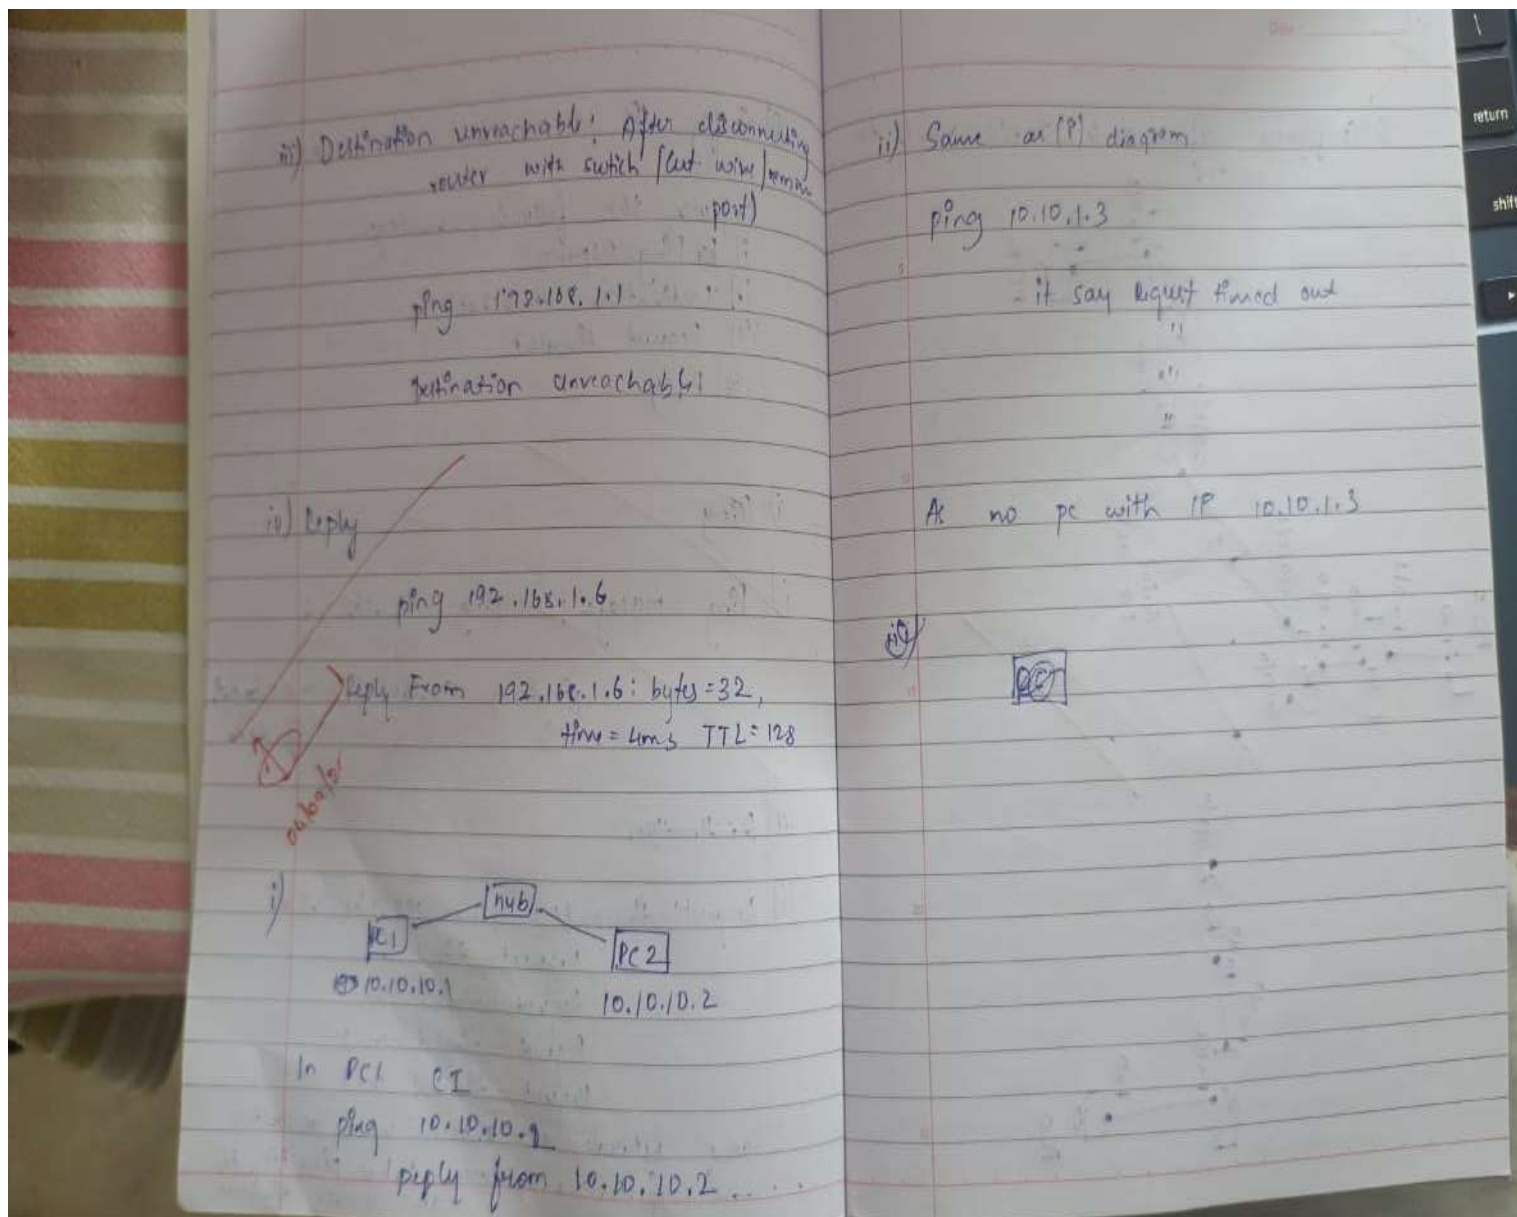 iii) Destination unreachable: After disconnecting
router with swtich (cut wire/remove
port)
ping 192.168.1.1
Destination unreachable!
iv) Reply
ping 192.168.1.6
Reply From 192.168.1.6: bytes=32,
time=4ms TTL=128
i)
hub
PC1
PC2
10.10.10.1
10.10.10.2
In PC1
ping 10.10.10.2
reply from 10.10.10.2 ....
Date
ii) Same as (i) diagram
ping 10.10.1.3
- it say request timed out
"
"
"
As no pc with IP 10.10.1.3
return
shift